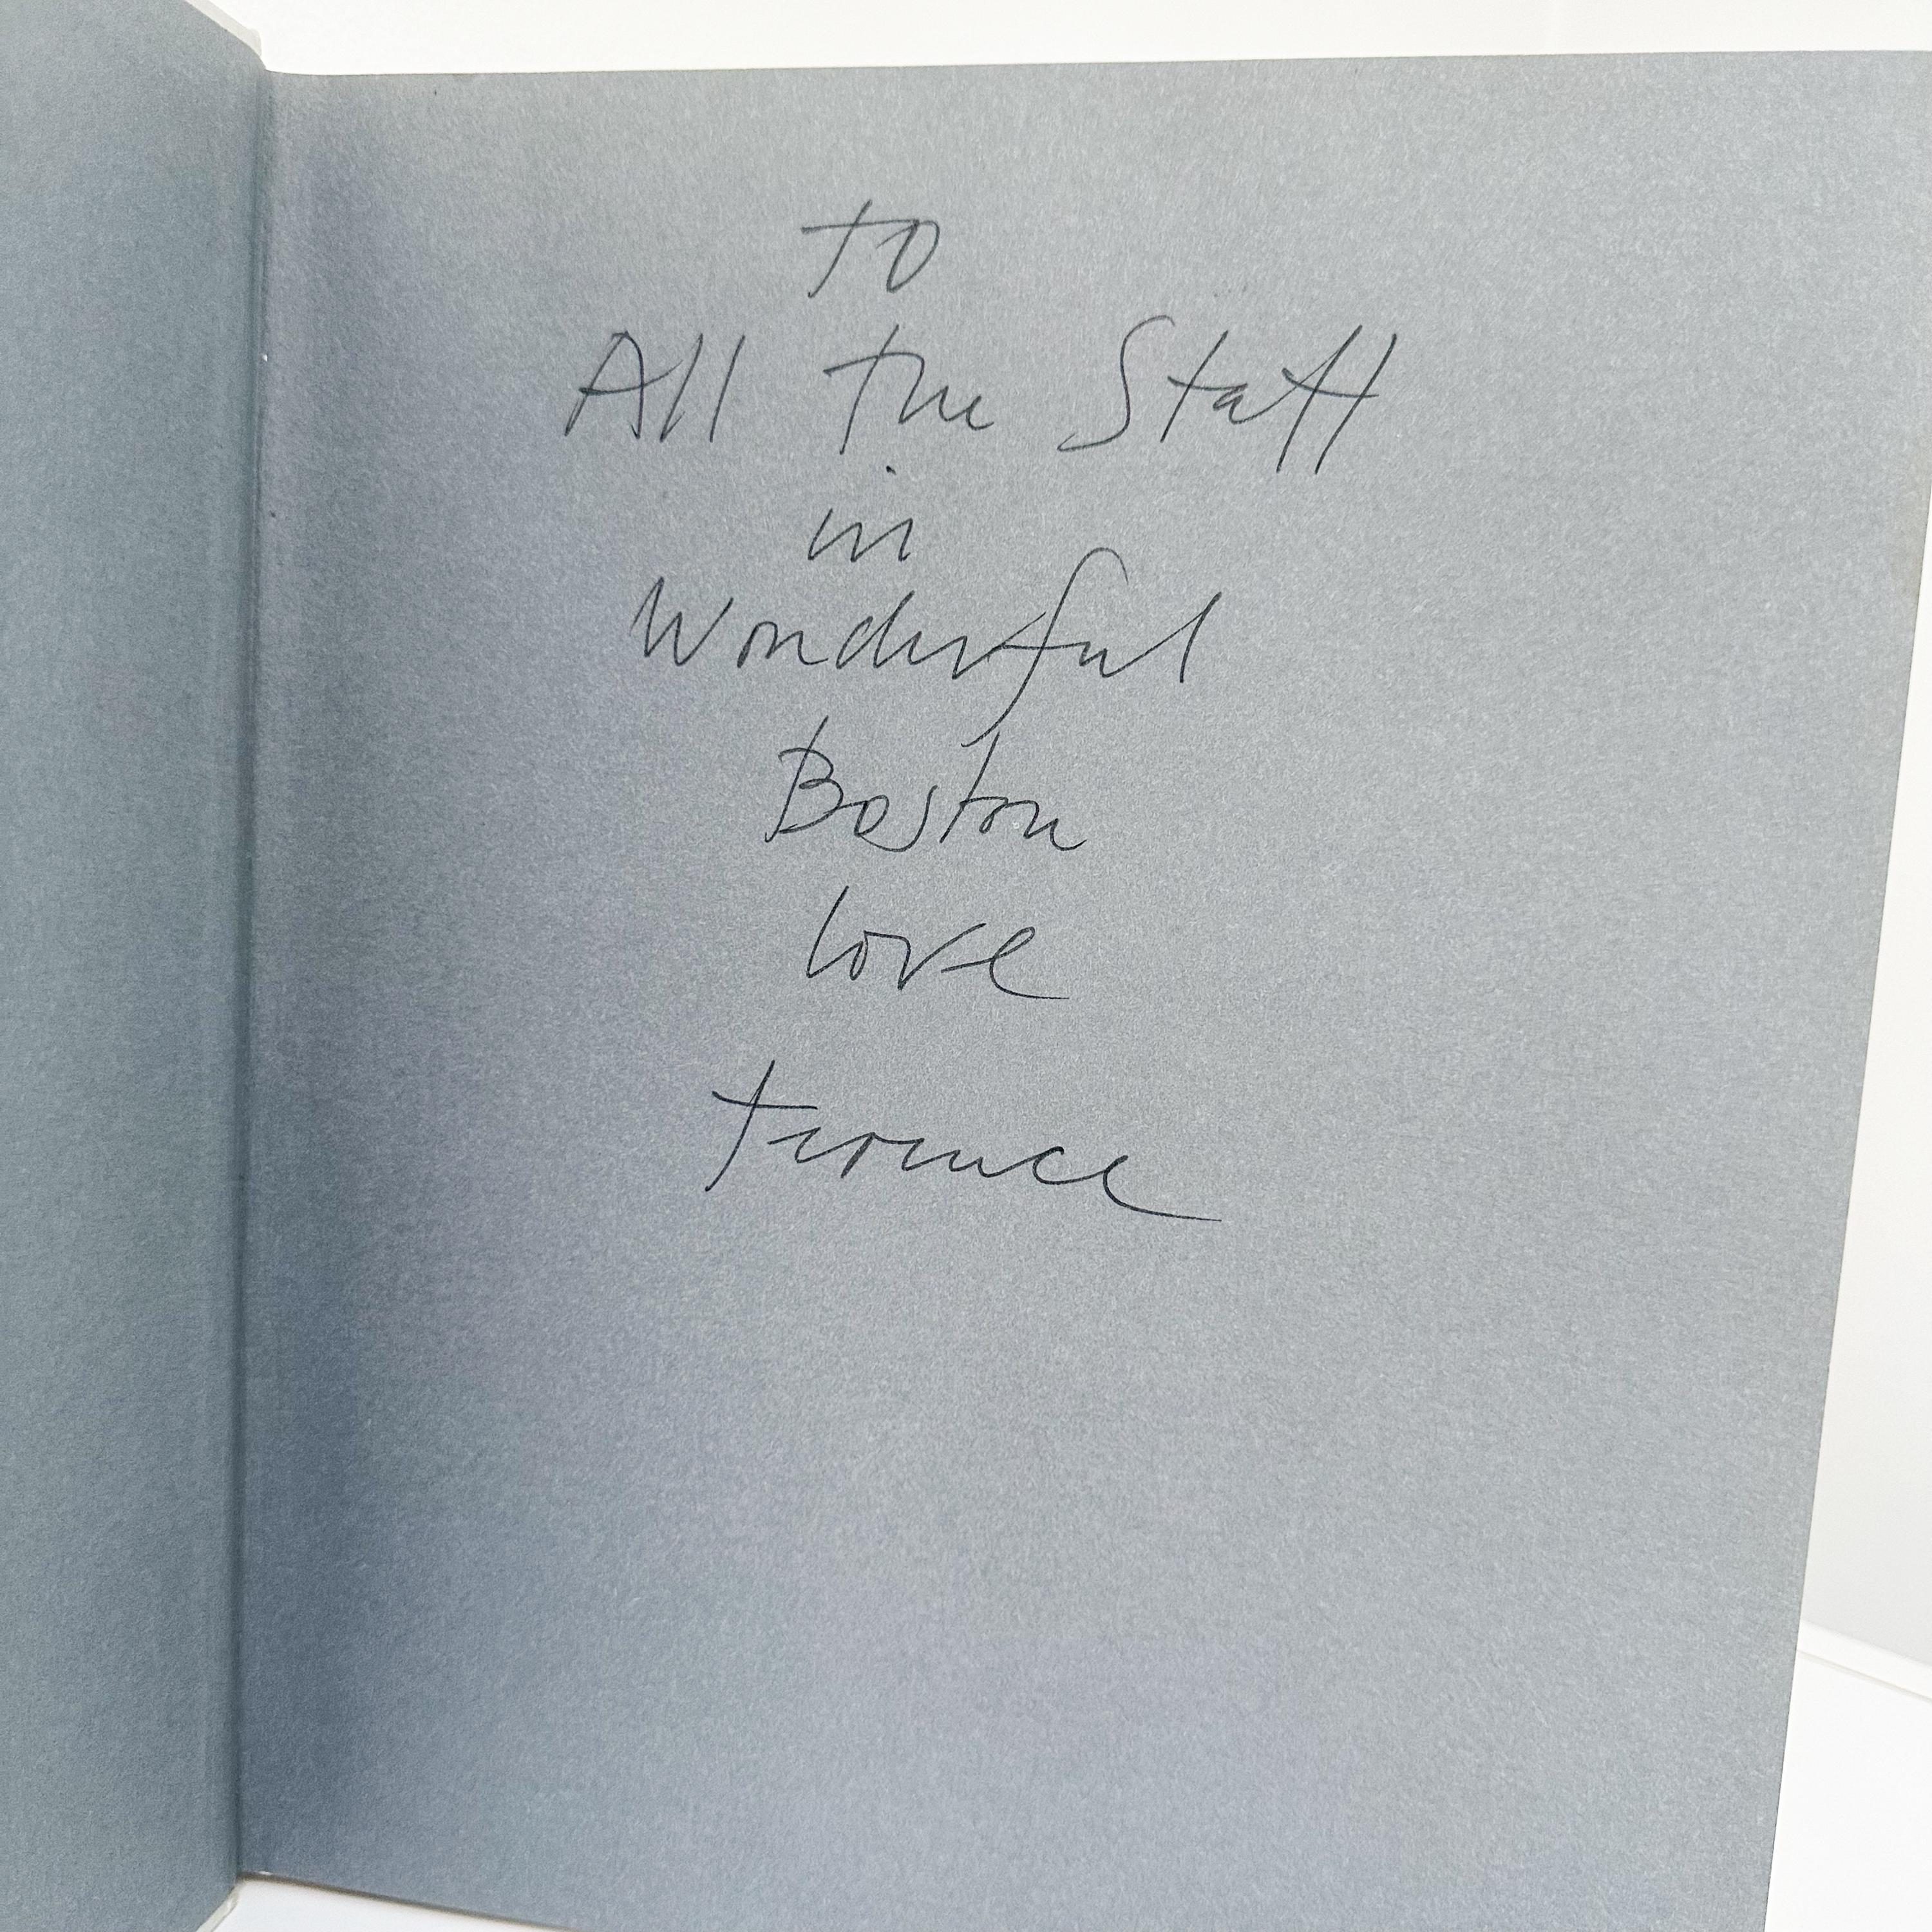 to
All the Staff
in
Wonderful
Boston
love
terence